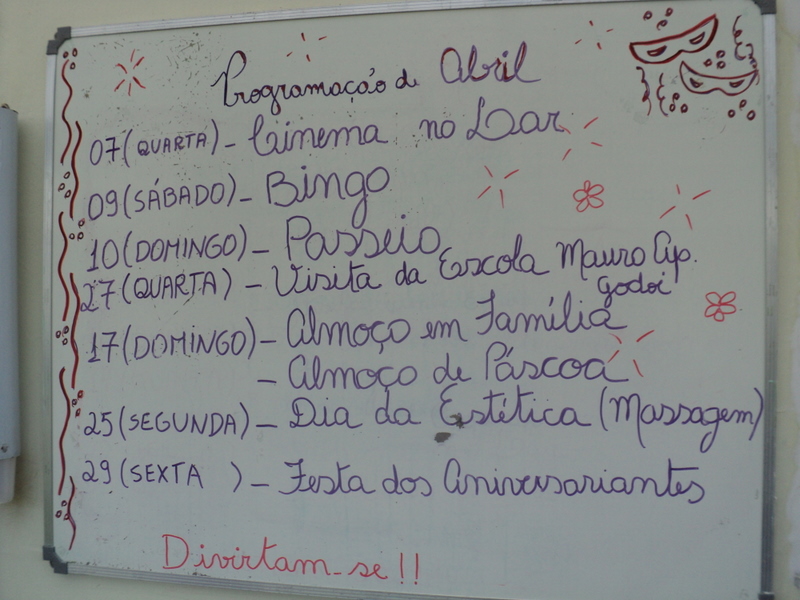 Programação de Abril
07 (QUARTA) - Cinema no Lar
09 (SÁBADO) - Bingo
10 (DOMINGO) - Passeio
27 (QUARTA) - Visita da Escola Mauro Ap.
Godoi
17 (DOMINGO) - Almoço em Família
- Almoço de Páscoa
25 (SEGUNDA) - Dia da Estética (Massagem)
29 (SEXTA ) - Festa dos Aniversariantes
Divirtam-se!!